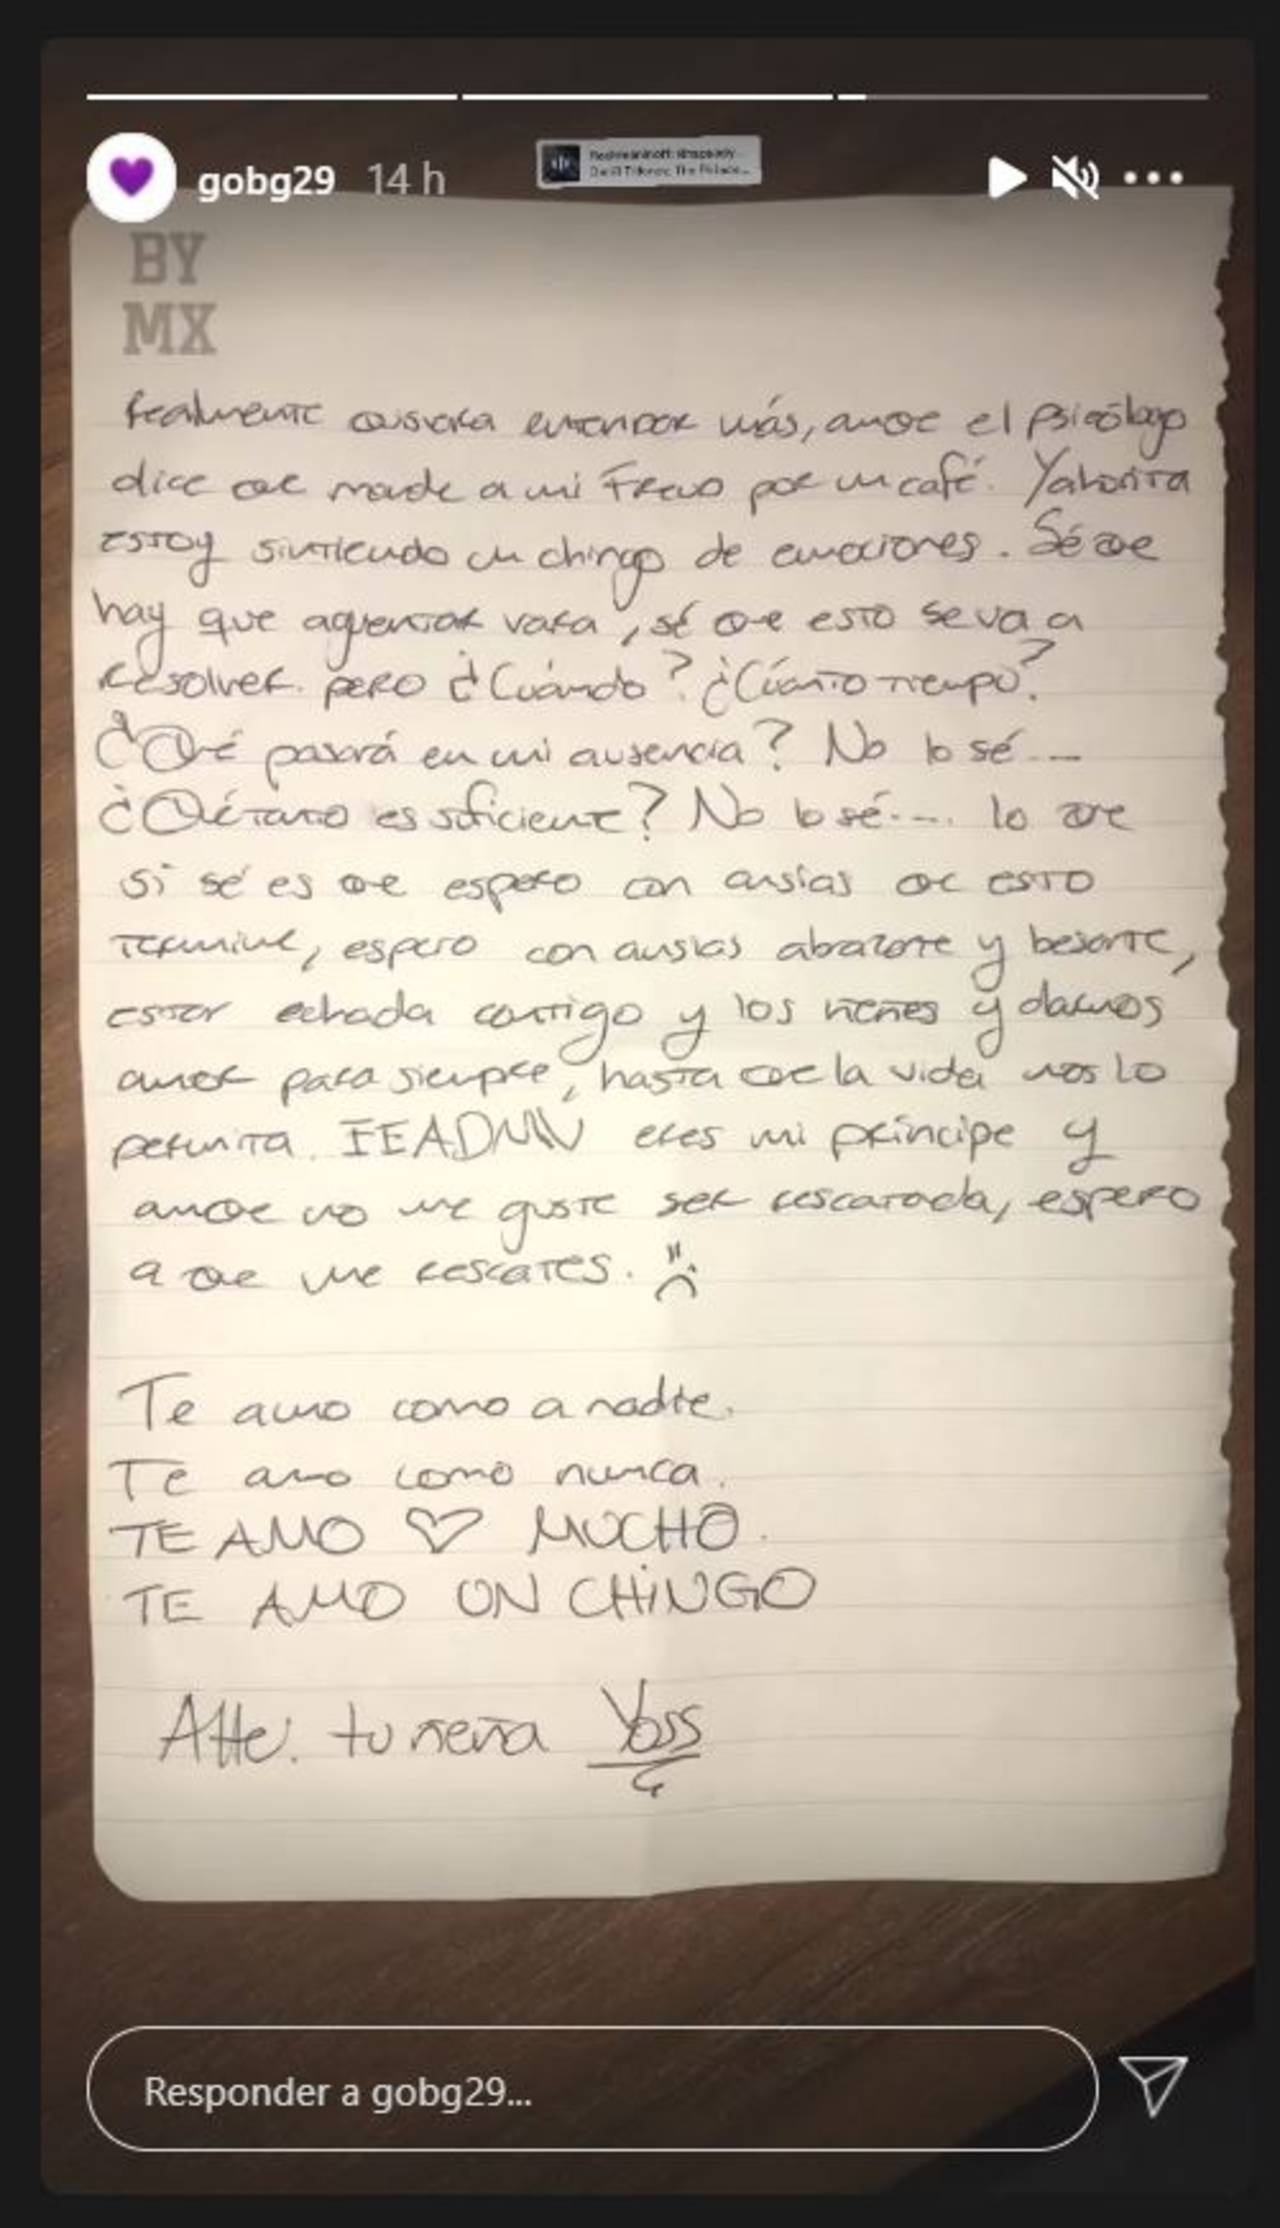 gobg29 14 h
Rachmaninoff: Rhapsody...
Daniil Trifonov, The Philade...
BY
MX
Realmente quisiera entender más, aunqe el psicólogo
dice qe mande a mi Freud por un café. Yahorita
estoy sintiendo un chingo de emociones. Sé qe
hay que aguentar vara, sé qe esto se va a
resolver. pero ¿Cuándo? ¿Cuánto tiempo?
¿Qué pasará en mi ausencia? No lo sé....
¿Qué tanto es suficiente? No lo sé.... lo qe
si sé es qe espero con ansias qe esto
termine, espero con ansias abrazarte y besarte,
estar echada contigo y los nenes y darnos
amor para siempre, hasta qe la vida nos lo
permita. eres mi príncipe y
aunqe no me guste ser rescatada, espero
a qe me rescates. :(
Te amo como a nadie.
Te amo como nunca.
TE AMO ♡ MUCHO.
TE AMO UN CHiNGO
Atte: tu nena Yoss
Responder a gobg29...